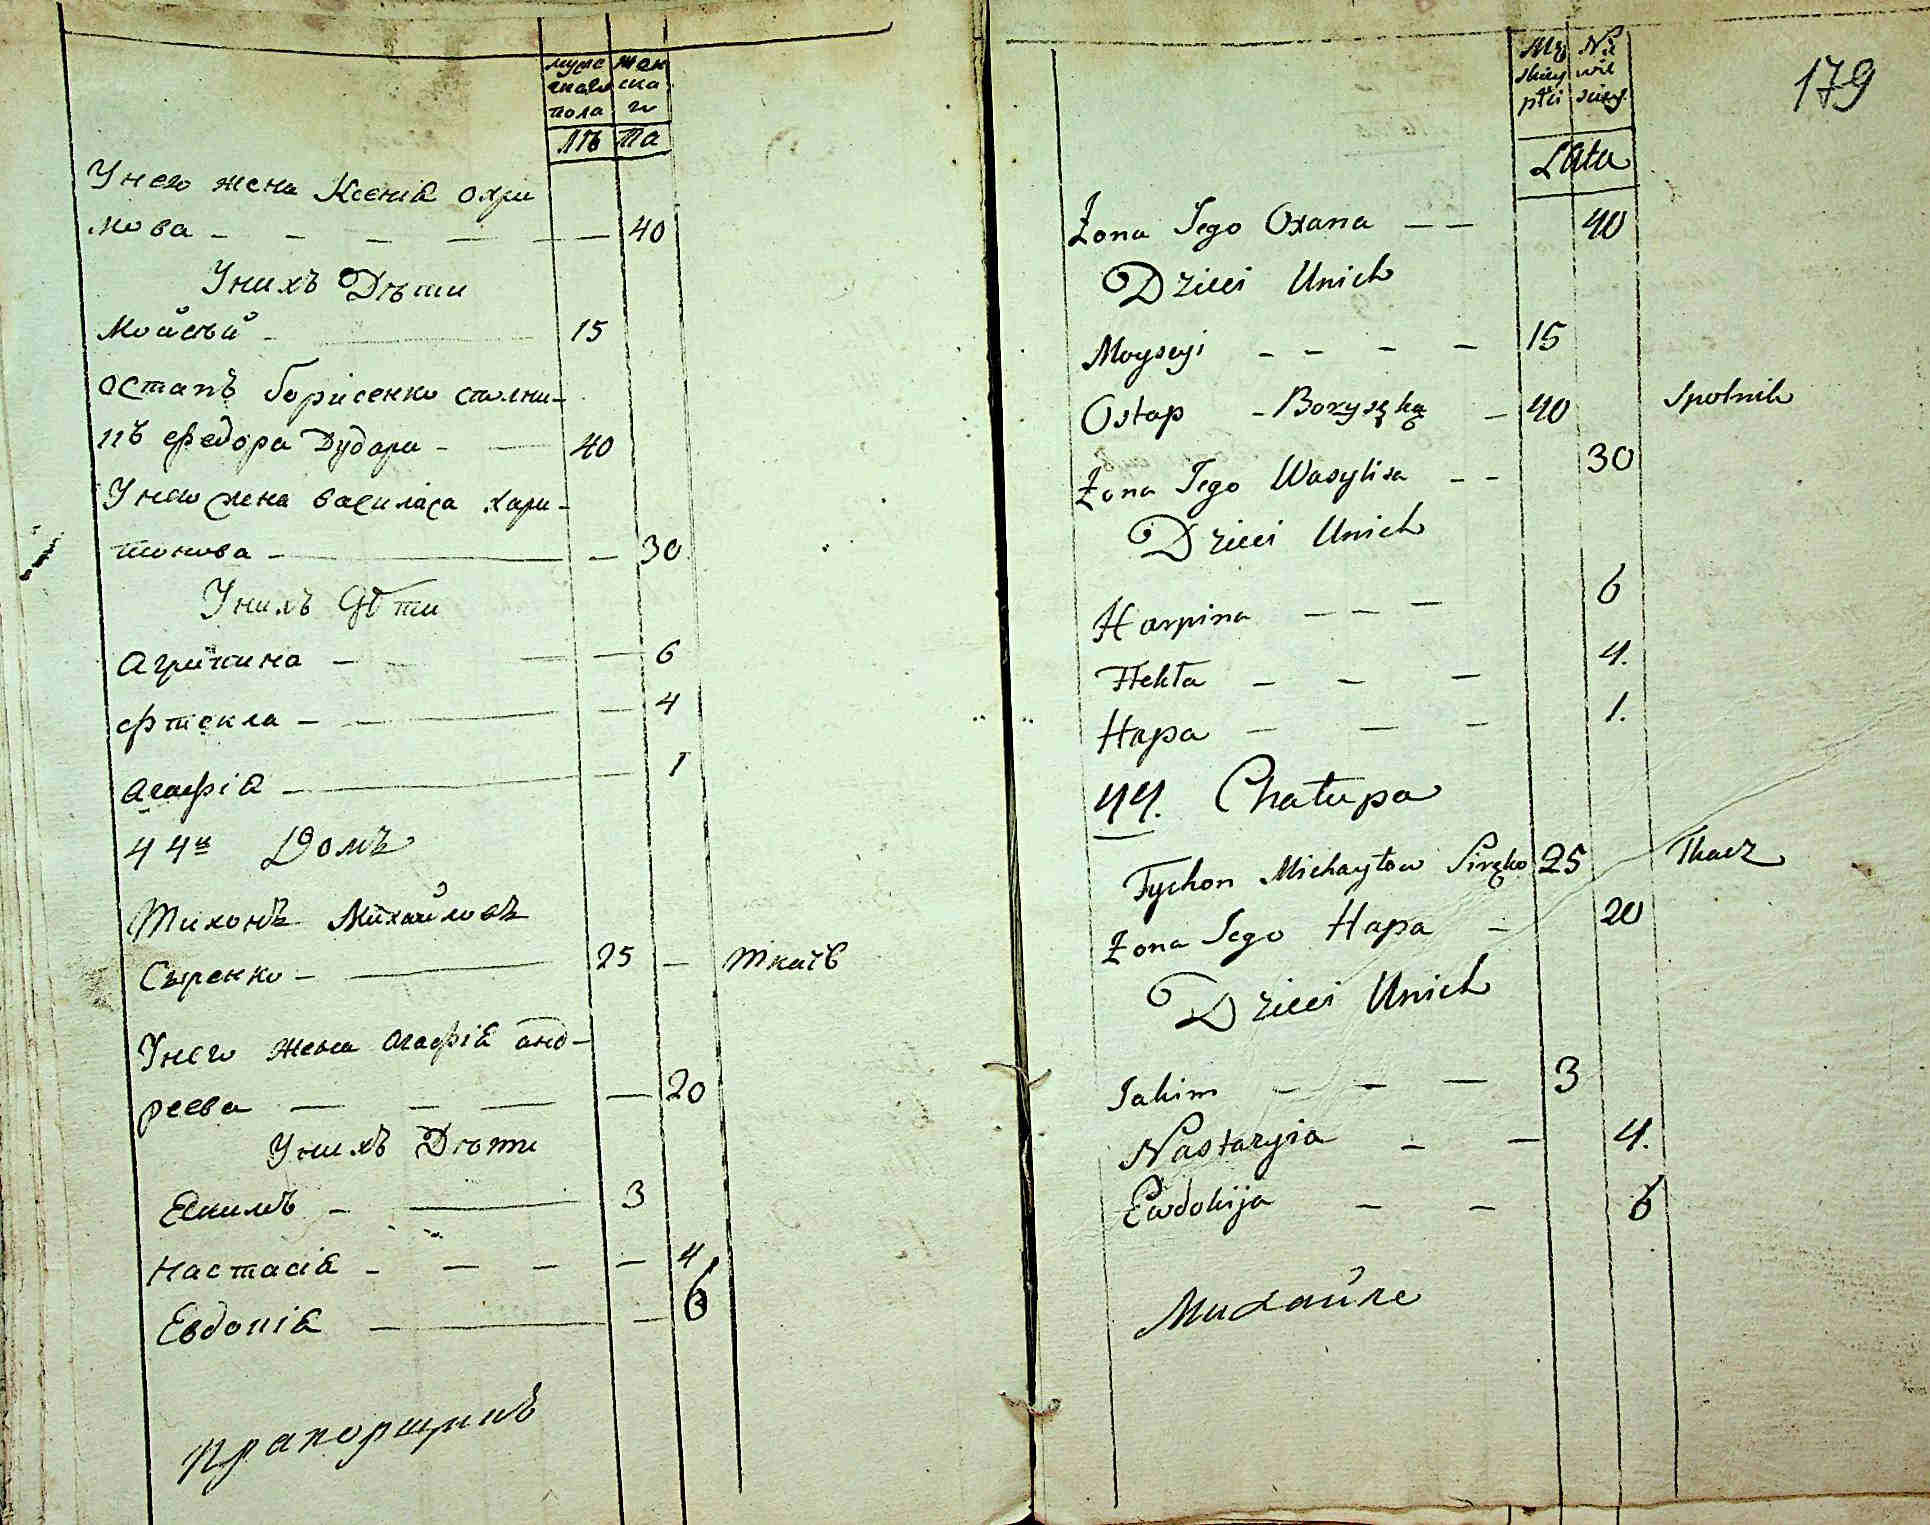 мужескаго пола
женскаго
лѣта
У него жена Ксенiа Охри
мова - - - - - - 40
У нихъ Дѣти
Мойсѣй - 15
Остапъ Борисенко столни-
къ Федора Дударя - 40
У него жена Василиса Хари-
тонова - 30
У нихъ Дѣти
Агрипина - 6
Фтекла - 4
Агафiа - 1
44й Домъ
Тихонъ Михайловъ
Сыренко - 25 - Ткачъ
У него жена Агафiа Анд-
реева - - - 20
У нихъ Дѣти
Екимъ - 3
Настасiа - - - - 4
Евдокiа - 6
прапорщикъ
179
Męskiey płci
Lata
Żona Jego Oxana - - 40
Dzieci Unich
Moyseyi - - - - 15
Ostap - Boryseko - 40 Spolnik
Żona Jego Wasylisa - - 30
Dzieci Unich
Harpina - - - 6
Ftekła - - - 4.
Hapa - - - 1.
44. Chałupa
Tychon Michayłow Sireko 25 Tkacz
Żona Jego Hapa - 20
Dzieci Unich
Jakim - - - 3
Nastazyia - - 4.
Ewdokija - - 6
Михайле